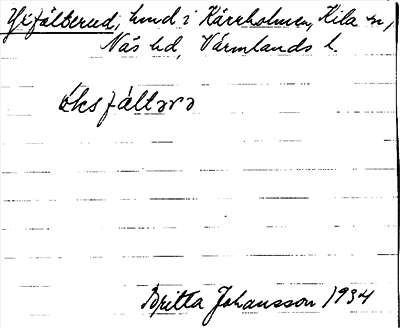 Yxfälterud, hmd i Kärrholmen, Kila sn,
Näs hd, Värmlands l.
ỳksfáltərə
Britta Johansson 1934